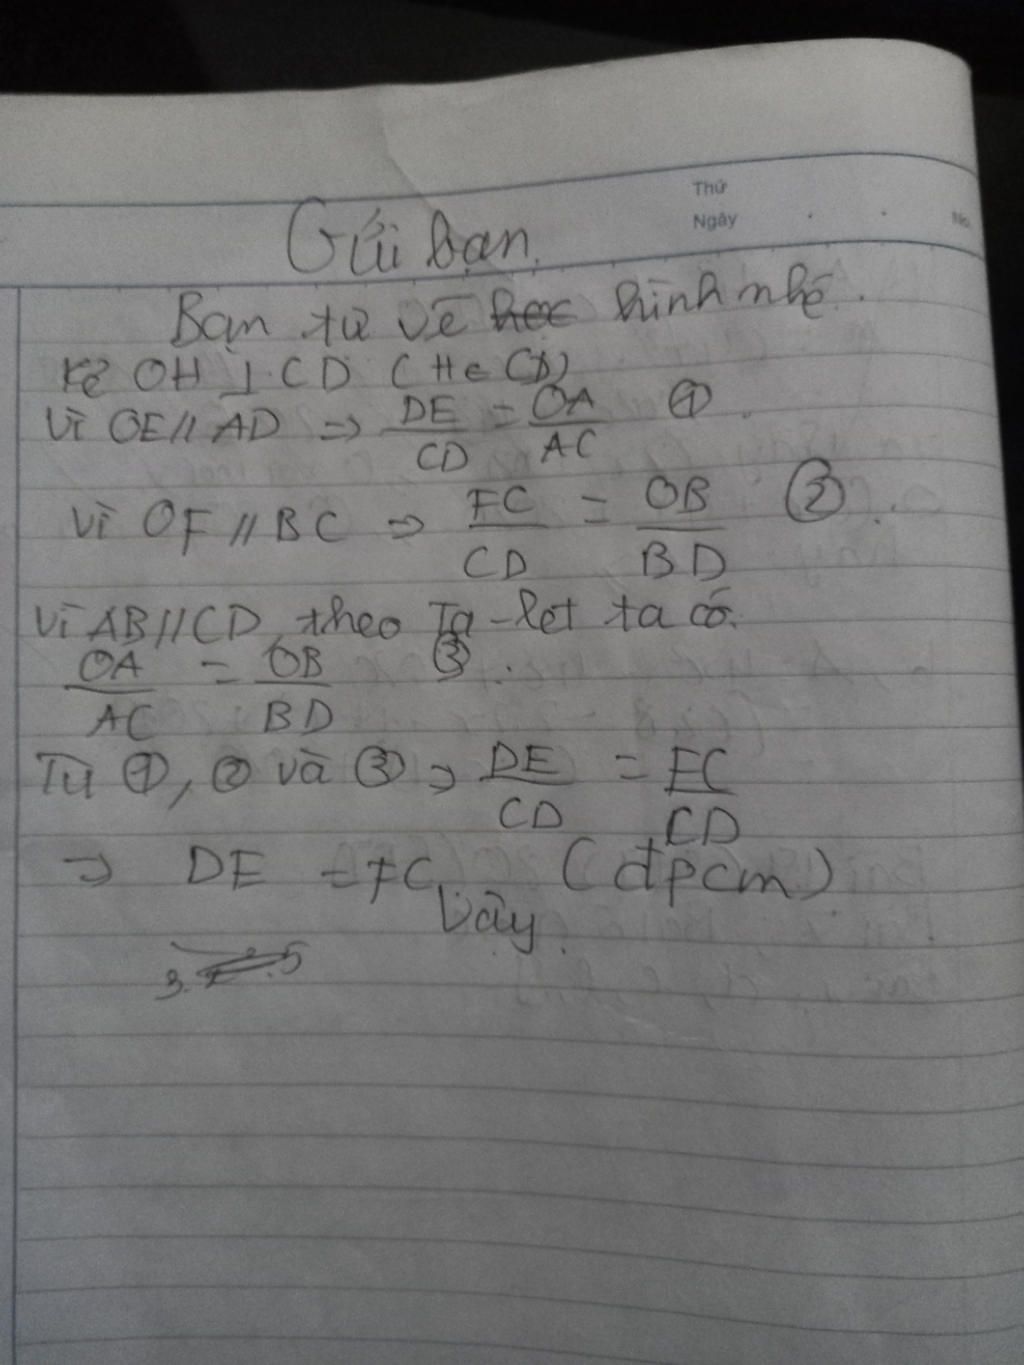 Thứ
Ngày . . No.
Gửi bạn.
Bạn tự vẽ hình nhé.
Kẻ OH ⊥ CD (H∈CD)
Vì OE // AD => DE/CD = OA/AC ①.
Vì OF // BC => FC/CD = OB/BD ②.
Vì AB//CD, theo Ta-let ta có:
OA/AC = OB/BD ③.
Từ ①, ② và ③ => DE/CD = FC/CD
=> DE = FC (đpcm)
Vậy.